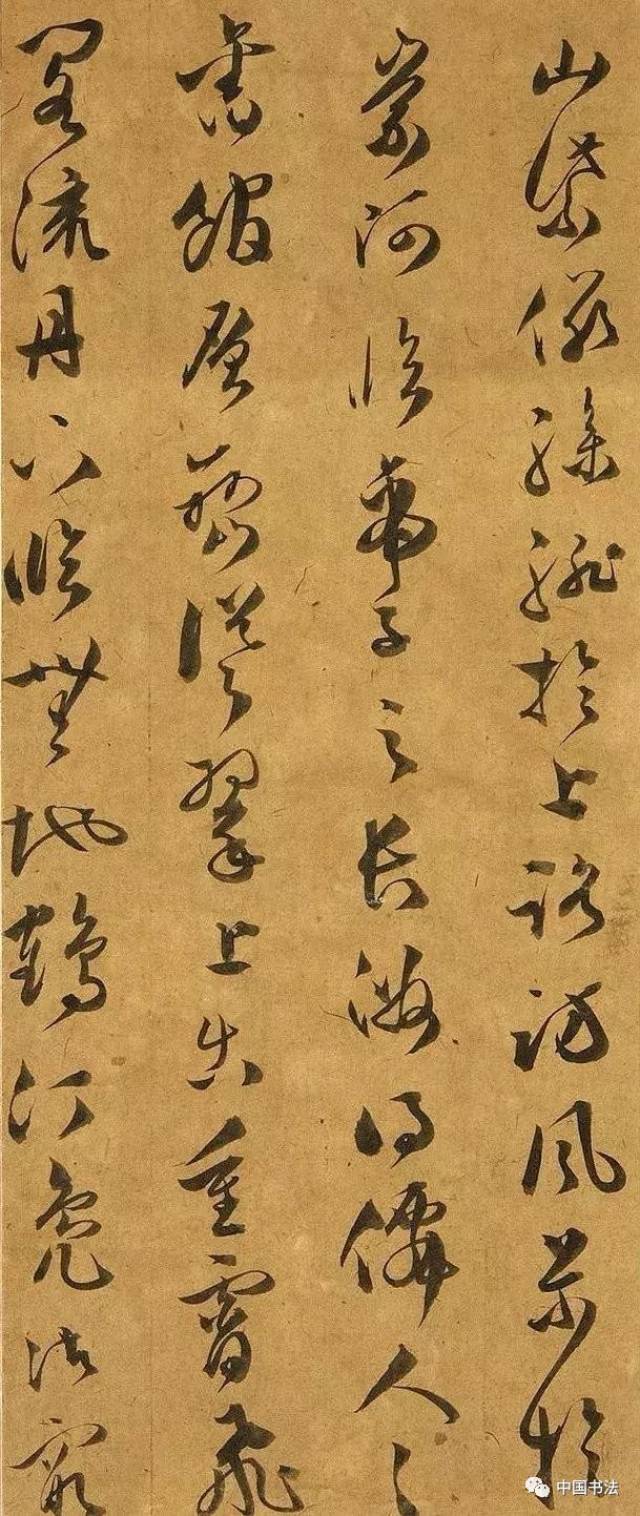 山紫儼驂騑於上路訪風景於
崇阿臨帝子之長洲得僊人之
舊館層巒聳翠上出重霄飛
閣流丹下臨無地鶴汀鳧渚窮
中国书法